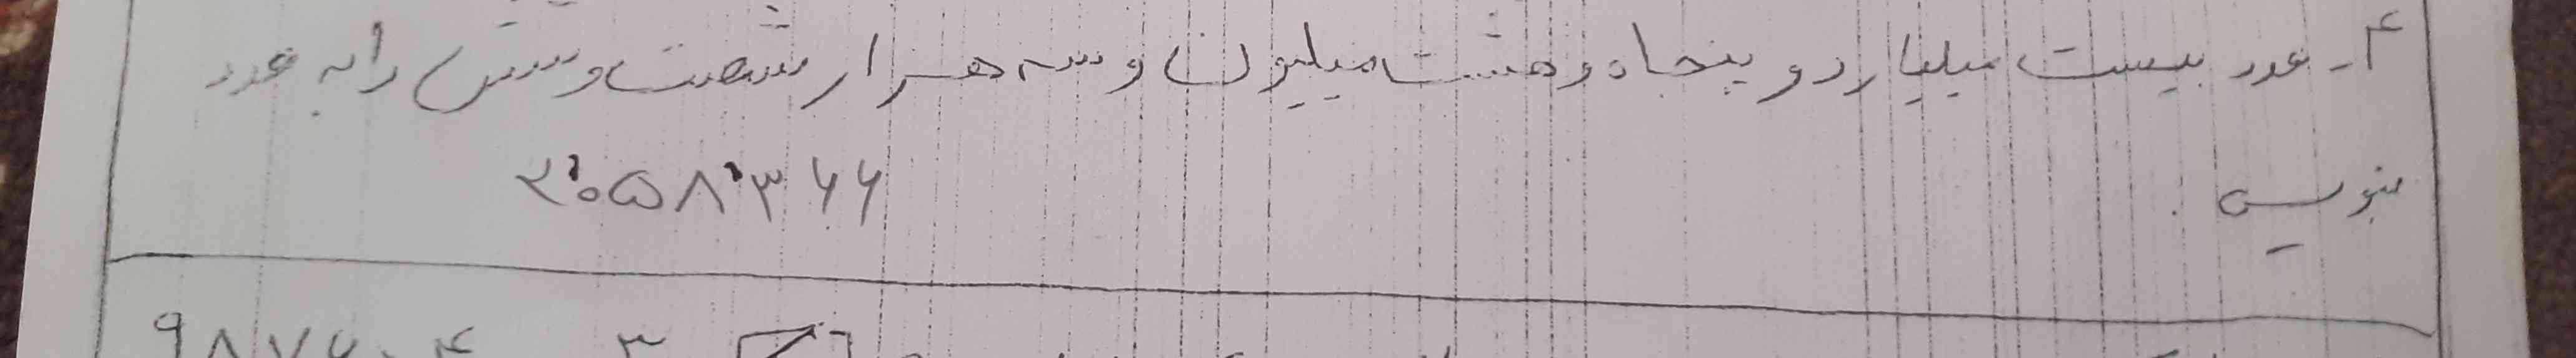 ۴- عدد بیست میلیارد و پنجاه و هشت میلیون و سه هزار شصت و شش را به عدد
بنویس.
۲۰۵۸۰۳۶۶